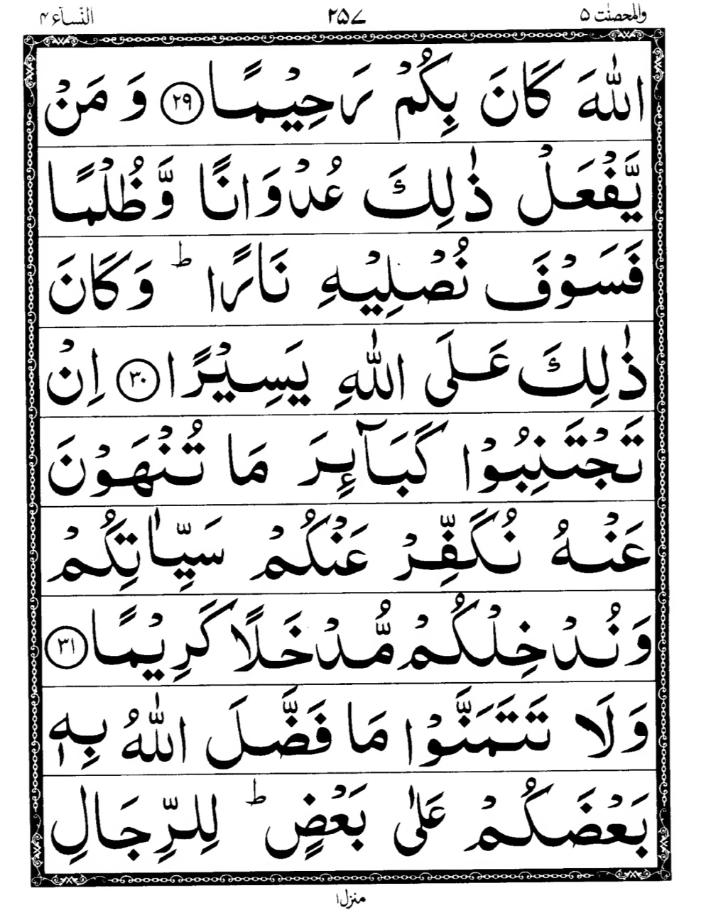 والمحصنٰت ۵ ۲۵۷ النّسآء ۴
اللّٰهَ كَانَ بِكُمْ رَحِيْمًا ﴿۲۹﴾ وَ مَنْ
يَّفْعَلْ ذٰلِكَ عُدْوَانًا وَّظُلْمًا
فَسَوْفَ نُصْلِيْهِ نَارًا ؕ وَكَانَ
ذٰلِكَ عَلَى اللّٰهِ يَسِيْرًا ﴿۳۰﴾ اِنْ
تَجْتَنِبُوْا كَبَآئِرَ مَا تُنْهَوْنَ
عَنْهُ نُكَفِّرْ عَنْكُمْ سَيِّاٰتِكُمْ
وَنُدْخِلْكُمْ مُّدْخَلًا كَرِيْمًا ﴿۳۱﴾
وَلَا تَتَمَنَّوْا مَا فَضَّلَ اللّٰهُ بِهٖ
بَعْضَكُمْ عَلٰى بَعْضٍ ؕ لِلرِّجَالِ
منزل۱